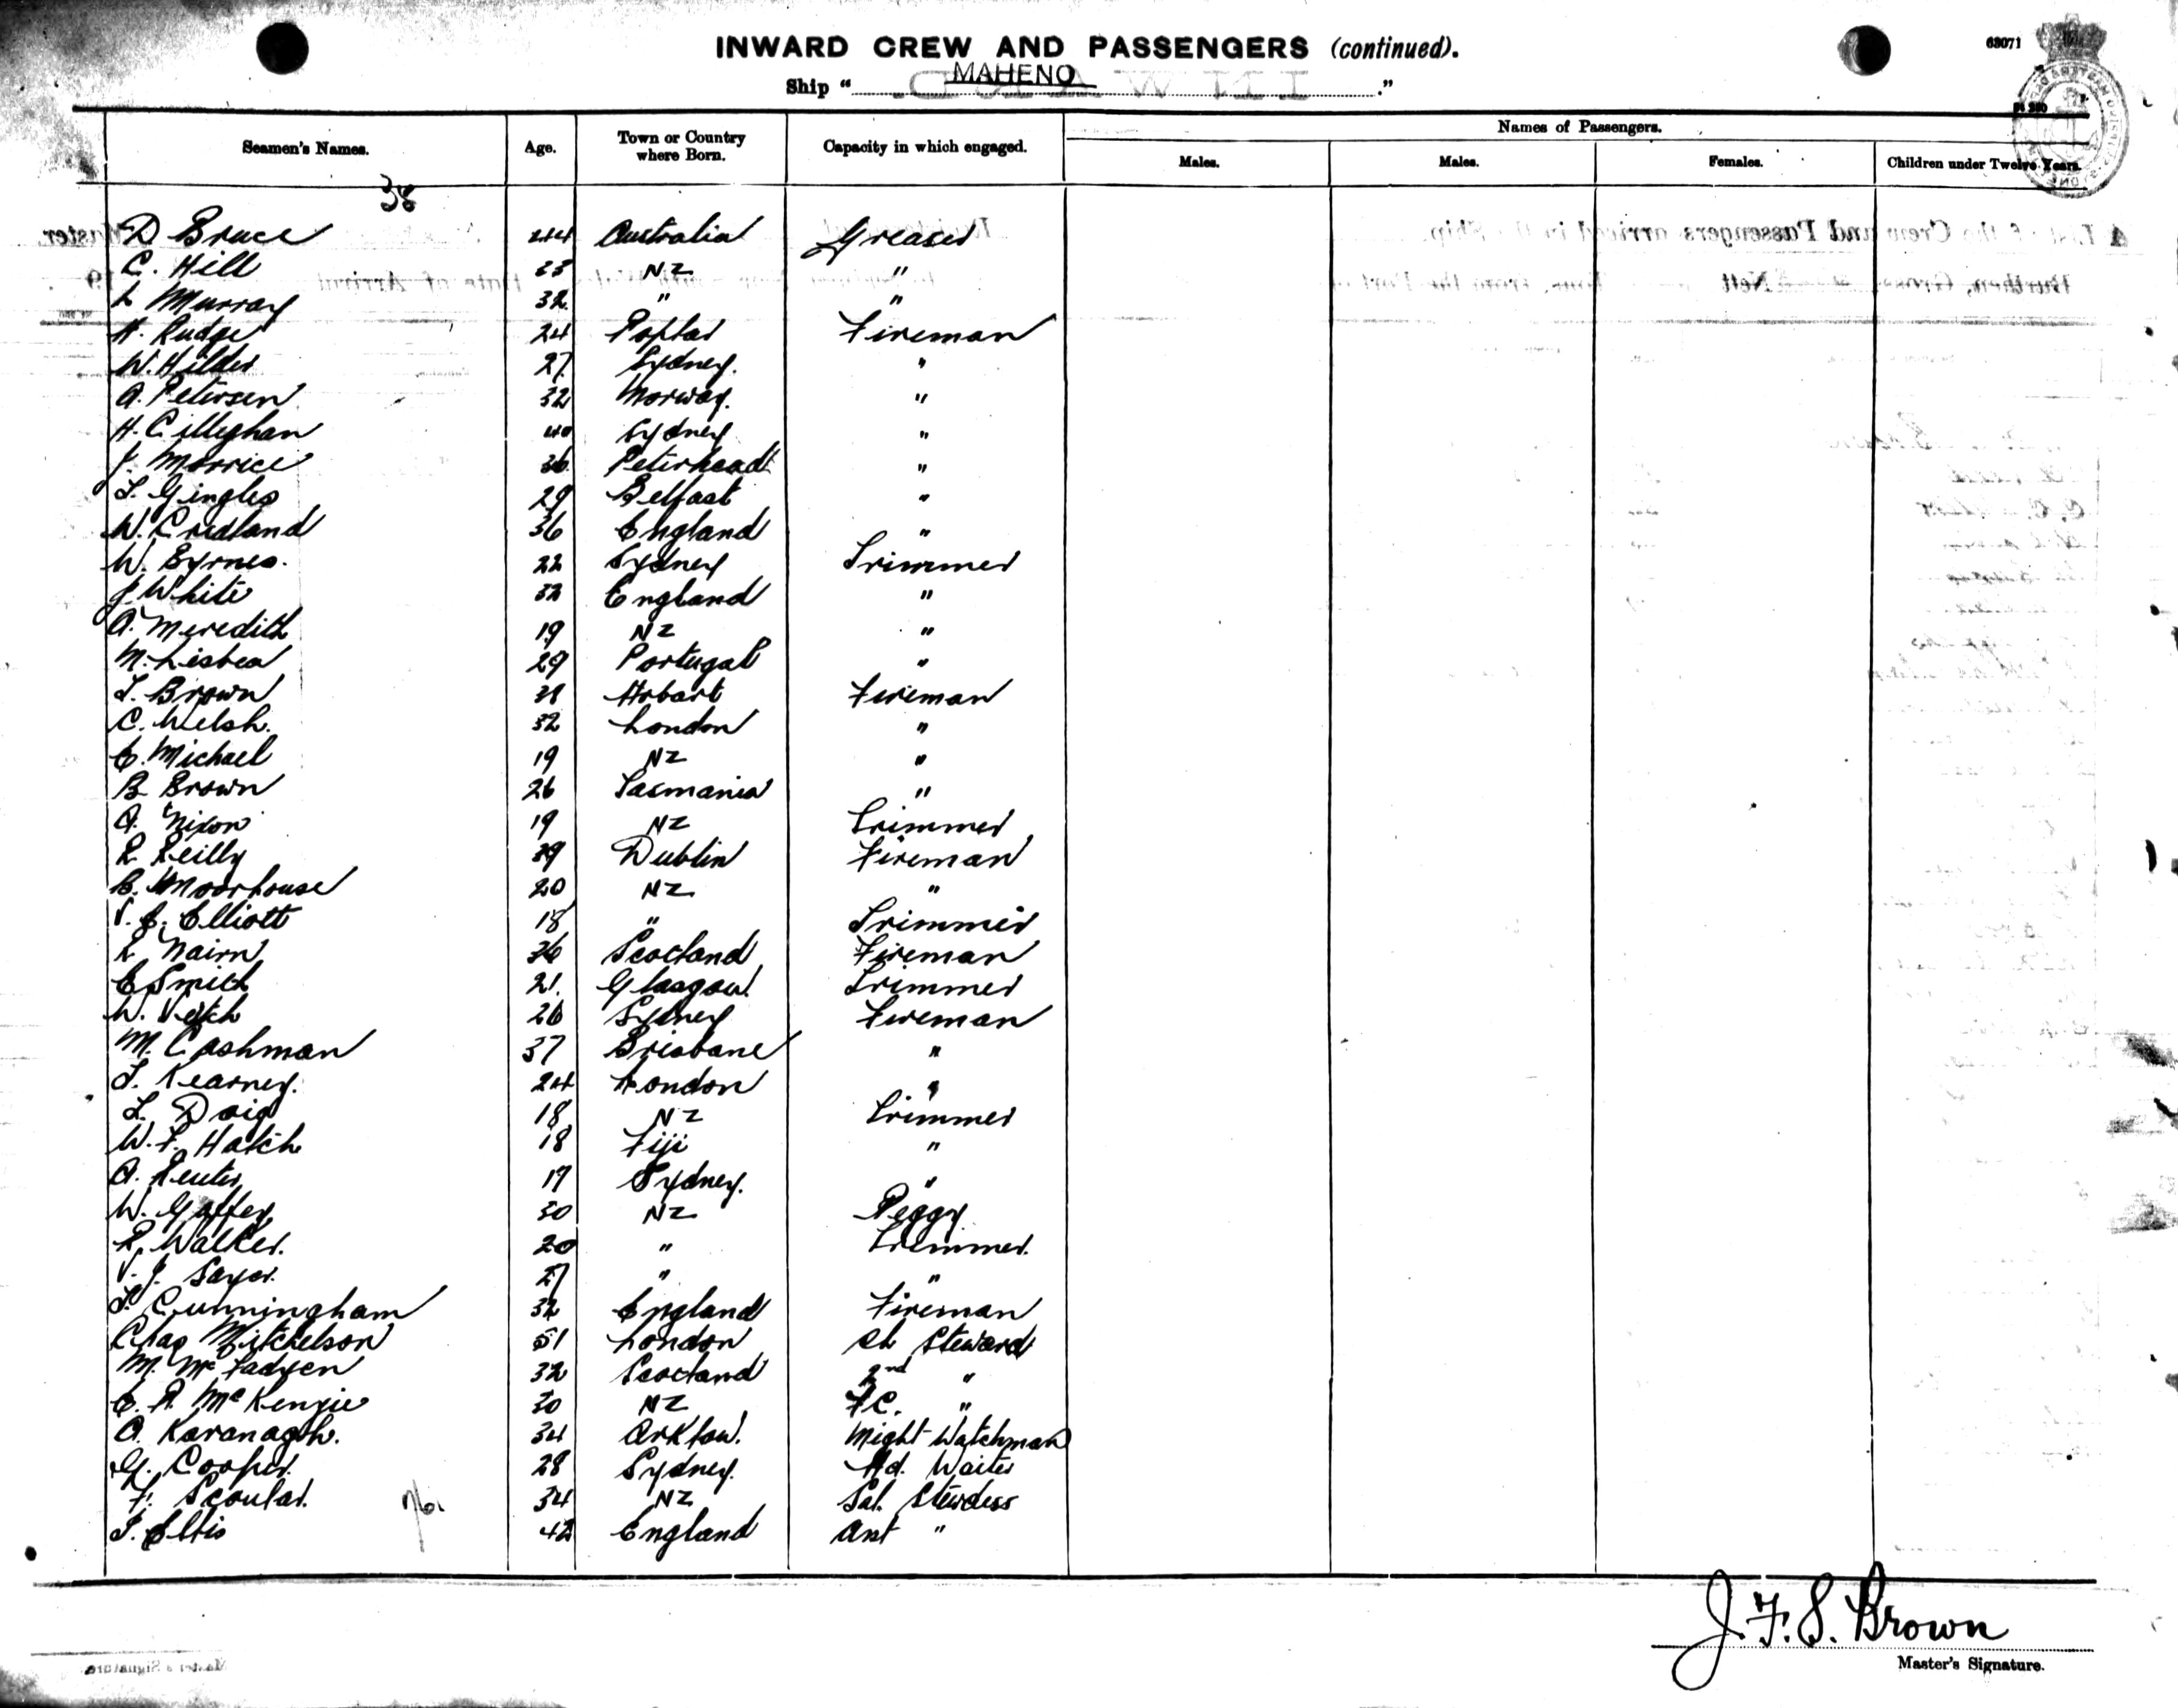 INWARD CREW AND PASSENGERS (continued).
63071
Ship " MAHENO ."
Seamen's Names. Age. Town or Country where Born. Capacity in which engaged. Names of Passengers.
Males. Males. Females. Children under Twelve Years.
38
D Bruce 44 Australia Greaser
C. Hill 23 NZ "
L Murray 32 " "
H. Rudge 24 Poplar Fireman
W. Hilder 27 Sydney. "
A. Petersen 32 Norway. "
H. Cilleghan 40 Sydney "
J. Morrice 36 Peterhead "
T. Gingles 29 Belfast "
W. Credland 36 England "
W. Byrnes. 22 Sydney Trimmer
J. White 32 England "
A. Meredith 19 NZ "
M. Lisbea 29 Portugal "
T. Brown Hobart Fireman
C. Welsh. 32 London "
E. Michael 19 NZ "
B Brown 26 Tasmania "
A. Nixon 19 NZ Trimmer
R Reilly 39 Dublin Fireman
B. Moorhouse 20 NZ "
V. J. Elliott 18 " Trimmer
R Nairn 36 Scotland Fireman
E Smith 21. Glasgow. Trimmer
W. Veitch 26 Sydney Fireman
M. Cashman 37 Brisbane "
T. Kearney. 24 London "
L. Doig 18 NZ Trimmer
W. F. Hatch 18 Fiji "
A. Reuter 19 Sydney. "
W. Gaffey 50 NZ Peggy.
R. Walker. 20 " Trimmer.
V. J. Sayer. 27 " "
T. Cunningham 32 England Fireman
Chas Mitchelson 51 London Ch Steward
M. McFadyen 32 Scotland 2nd "
E. R. McKenzie 30 NZ FC. "
A. Kavanagh. 34 Arklow. Night-Watchman
G. Cooper. 28 Sydney. Hd. Waiter
F. Scoular. 34 NZ Sal. Stewdess
T. Eltis 42 England Asst "
J. F. S. Brown
Master's Signature.